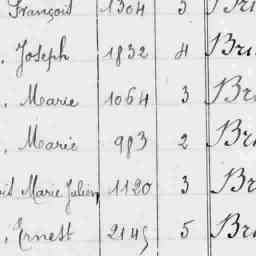 François 1304 3
, Joseph 1832 4 Bri
, Marie 1064 3
, Marie 983 2
Marie Julien 1120 3 Br
, Ernest 2145 5